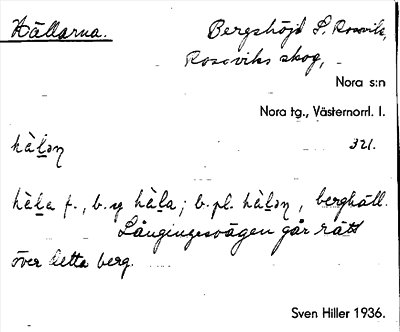 Hällarna. Bergshöjd S. Rossvik,
Rossviks skog,
Nora s:n
Nora tg., Västernorrl. l.
hàḷən 321.
hàḷa f., b. sg hàḷa; b. pl. hàḷən, berghäll.
Långingesvägen går rätt
över detta berg.
Sven Hiller 1936.